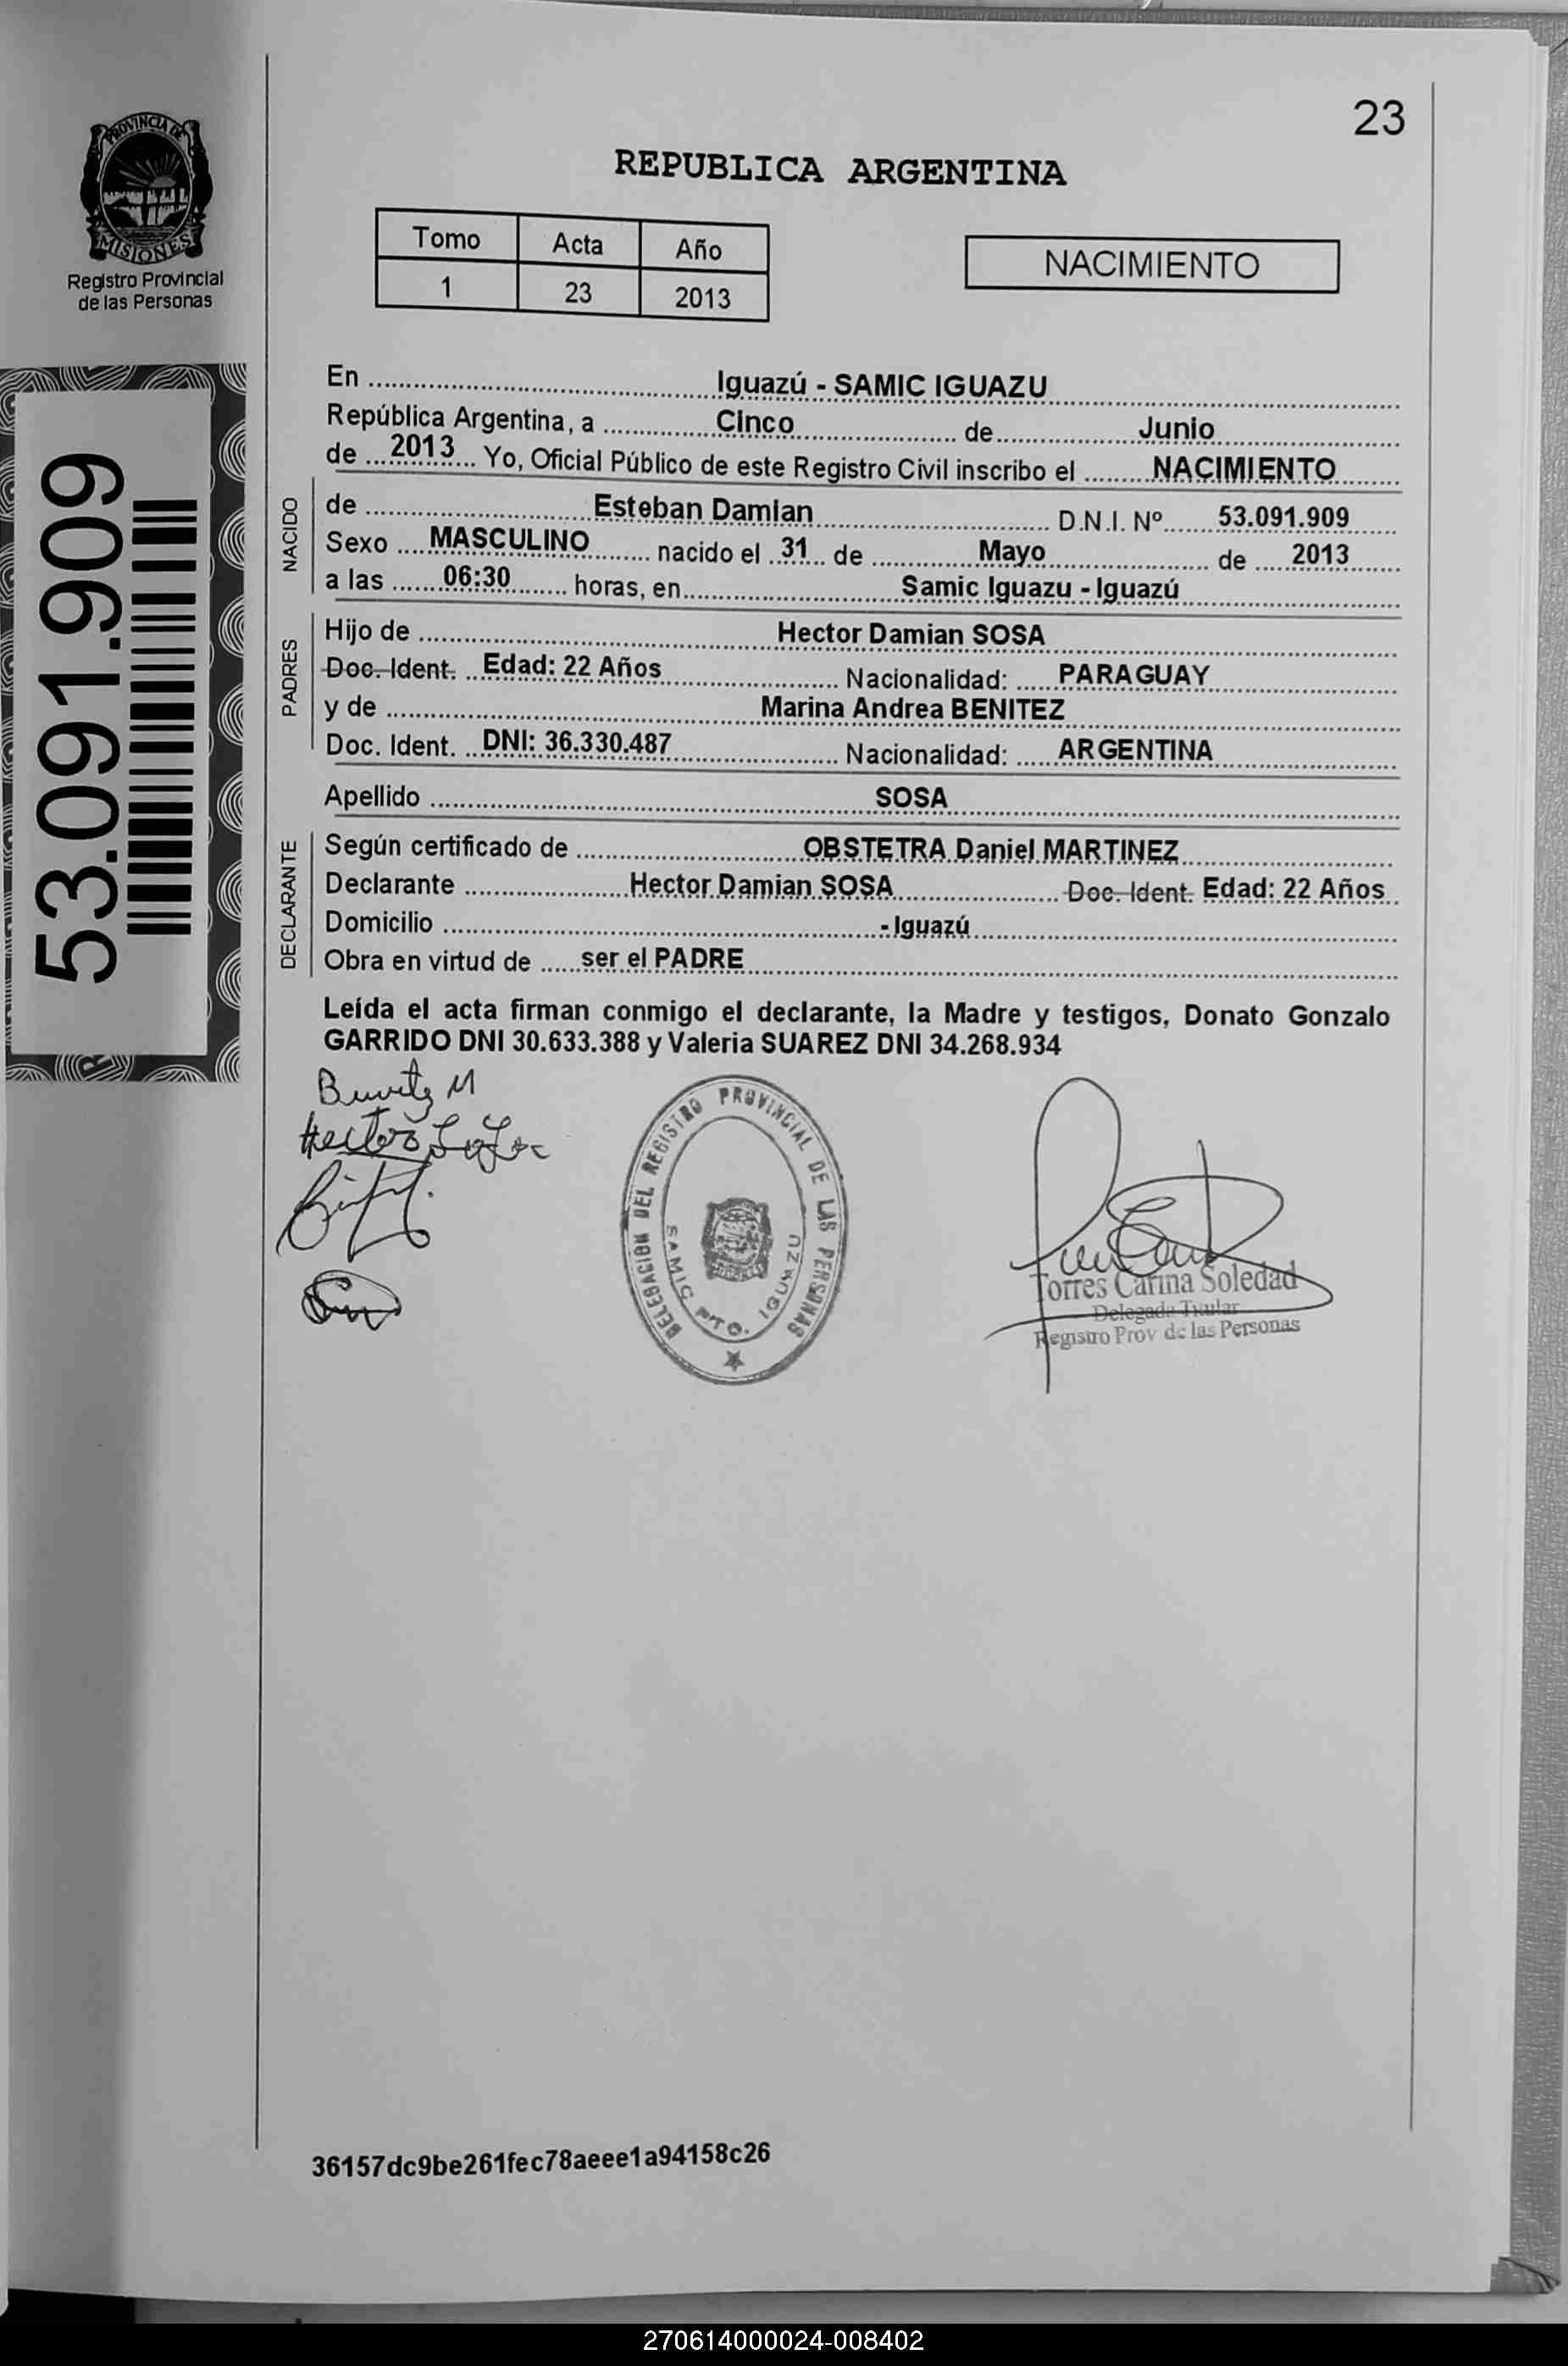 23
PROVINCIA DE
MISIONES
Registro Provincial
de las Personas
53.091.909
REPUBLICA ARGENTINA
Tomo Acta Año
1 23 2013
NACIMIENTO
En Iguazú - SAMIC IGUAZU
República Argentina, a Cinco de Junio
de 2013 Yo, Oficial Público de este Registro Civil inscribo el NACIMIENTO
NACIDO
de Esteban Damian D.N.I. Nº 53.091.909
Sexo MASCULINO nacido el 31 de Mayo de 2013
a las 06:30 horas, en Samic Iguazu - Iguazú
PADRES
Hijo de Hector Damian SOSA
Doc. Ident. Edad: 22 Años Nacionalidad: PARAGUAY
y de Marina Andrea BENITEZ
Doc. Ident. DNI: 36.330.487 Nacionalidad: ARGENTINA
Apellido SOSA
DECLARANTE
Según certificado de OBSTETRA Daniel MARTINEZ
Declarante Hector Damian SOSA Doc. Ident. Edad: 22 Años
Domicilio - Iguazú
Obra en virtud de ser el PADRE
Leída el acta firman conmigo el declarante, la Madre y testigos, Donato Gonzalo
GARRIDO DNI 30.633.388 y Valeria SUAREZ DNI 34.268.934
Hector
DELEGACION DEL REGISTRO PROVINCIAL DE LAS PERSONAS
SAMIC PTO. IGUAZU
Torres Carina Soledad
Delegada Titular
Registro Prov de las Personas
36157dc9be261fec78aeee1a94158c26
270614000024-008402